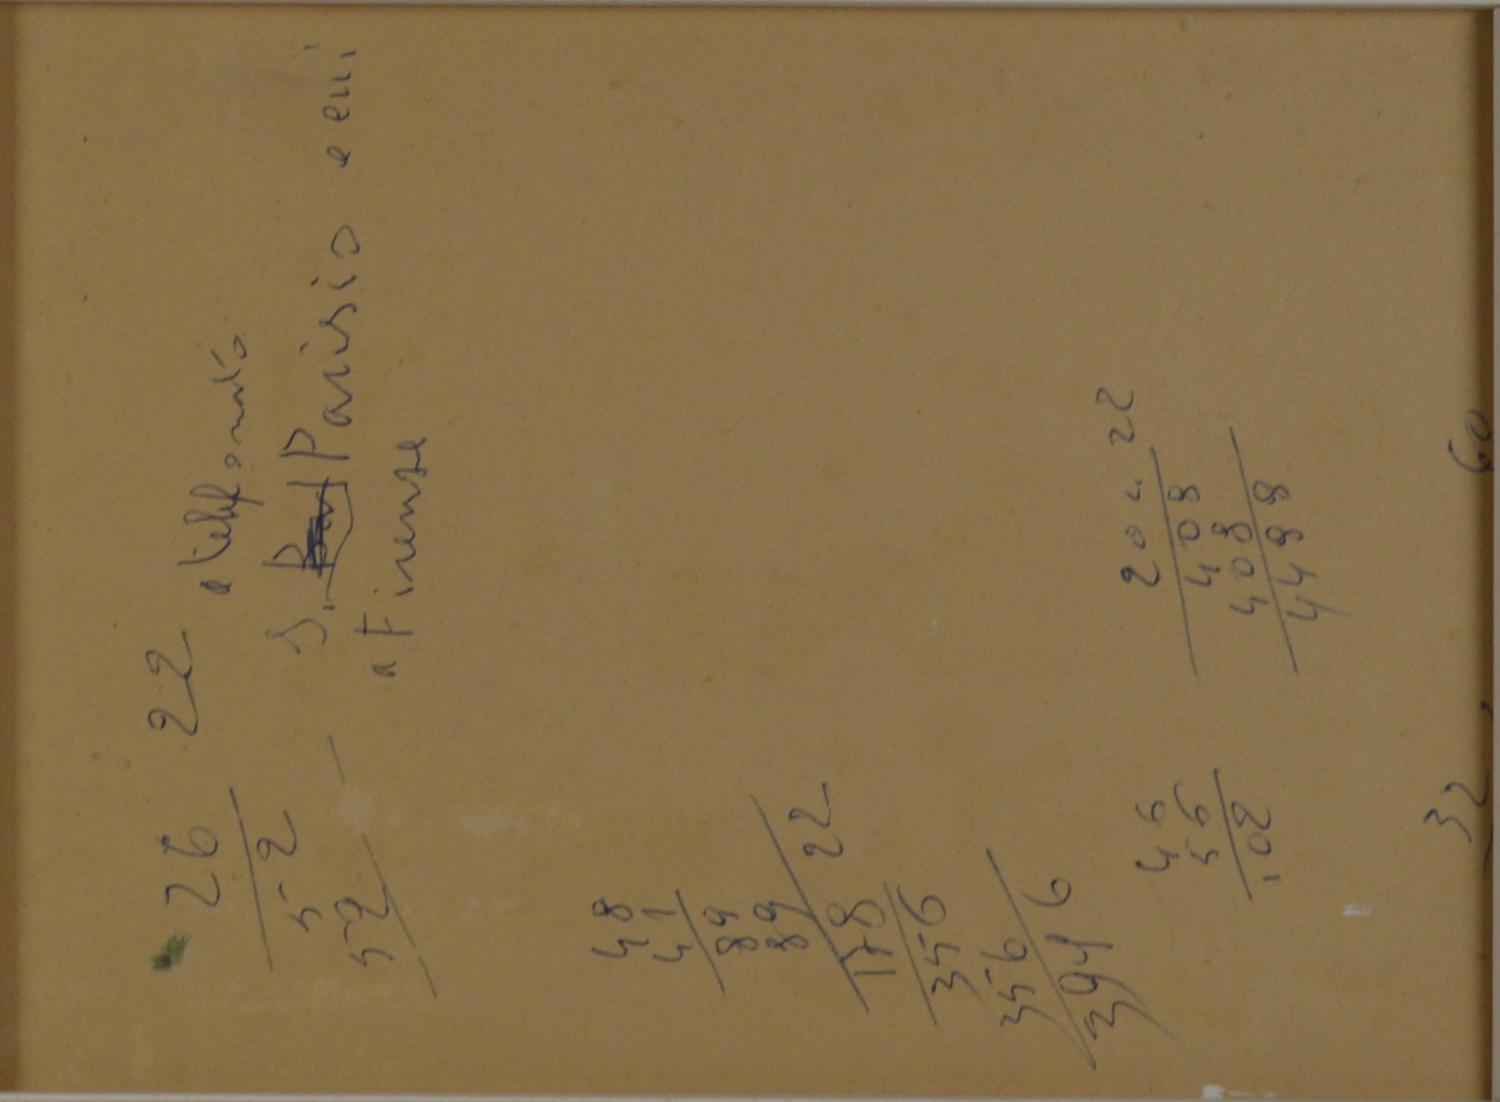 26 22
52
52
telefonato
S. Parisio
Firenze
48
41
89
89
178 22
356
356
3916
46
56
102
204 22
408
408
4488
32
60